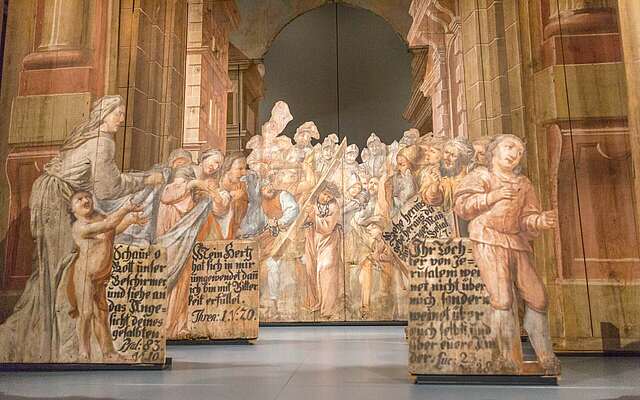 Schaue o
Gott unser
Beschirmer
und siehe an
das Ange-
sicht deines
gesalbten.
Psal: 83.
V. 10
Mein Hertz
hat sich in mir
umgewendet dan
ich bin mit Bitter
keit erfüllet.
Thren: 1. V. 20.
Ihr Töch-
ter von Je-
rusalem wei-
net nicht über
mich sondern
weinet über
euch selbst und
über euere kin
der. Luc: 23.